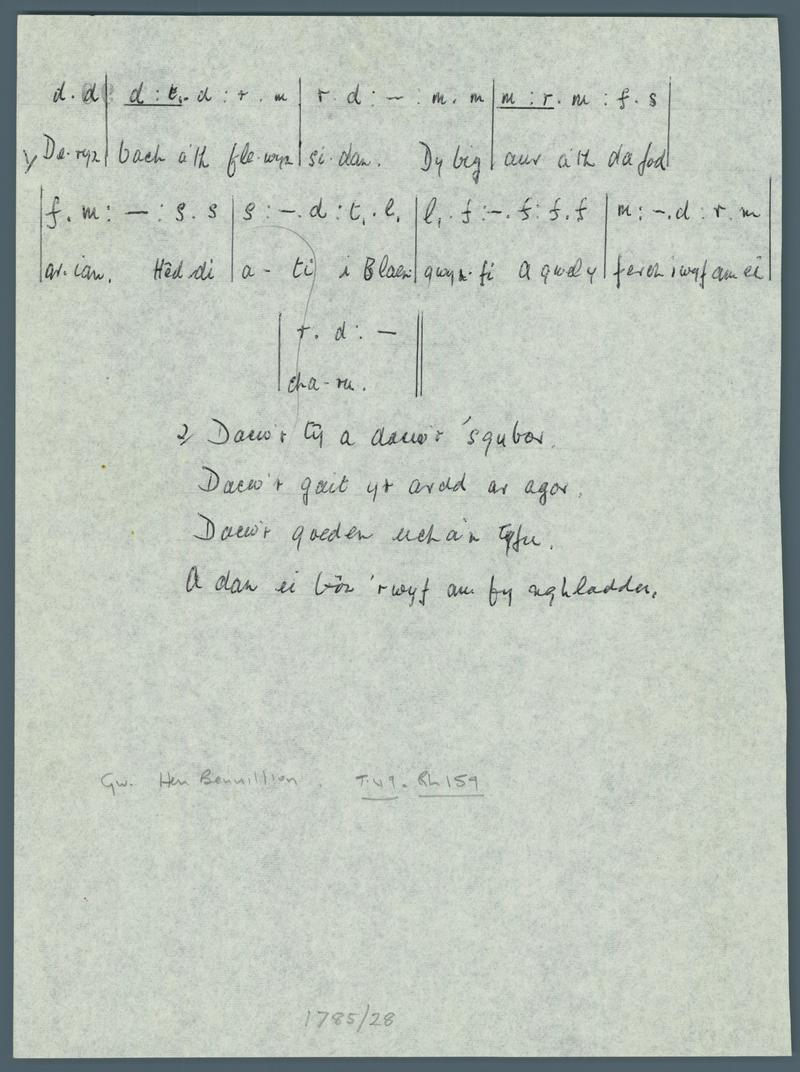 d . d | d : t₁ . d : r . m | r . d : — : m . m | m : r . m : f . s |
1/ De-ryn | bach a'th ble-wyn | si-dan. Dy big | aur a'th dafod |
| f . m : — : s . s | s : — . d : t₁ . l₁ | l₁ . f : — . f : f . f | m : — . d : r . m |
| ar-ian. Hêd di | a - ti i Blaen | gwyn-fi A gwel y | ferch 'rwyf am ei |
| r . d : — ||
cha-ru.
2/ Dacw'r tŷ a dacw'r 'sgubor.
Dacw'r gait yr ardd ar agor.
Dacw'r goeden ucha'n tyfu.
A dan ei bôn 'rwyf am fy nghladdu.
Gw. Hen Bennillion. T.49. Rh 159
1785/28